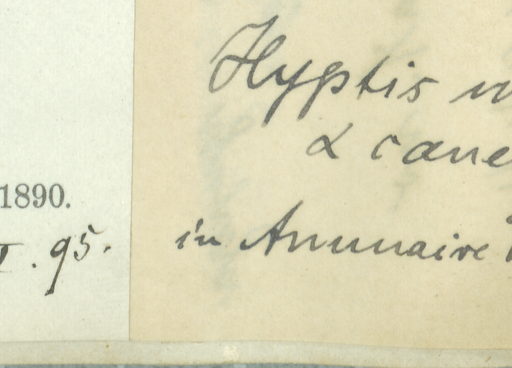 1890.
95.
Hyptis
α cane
in Annuaire